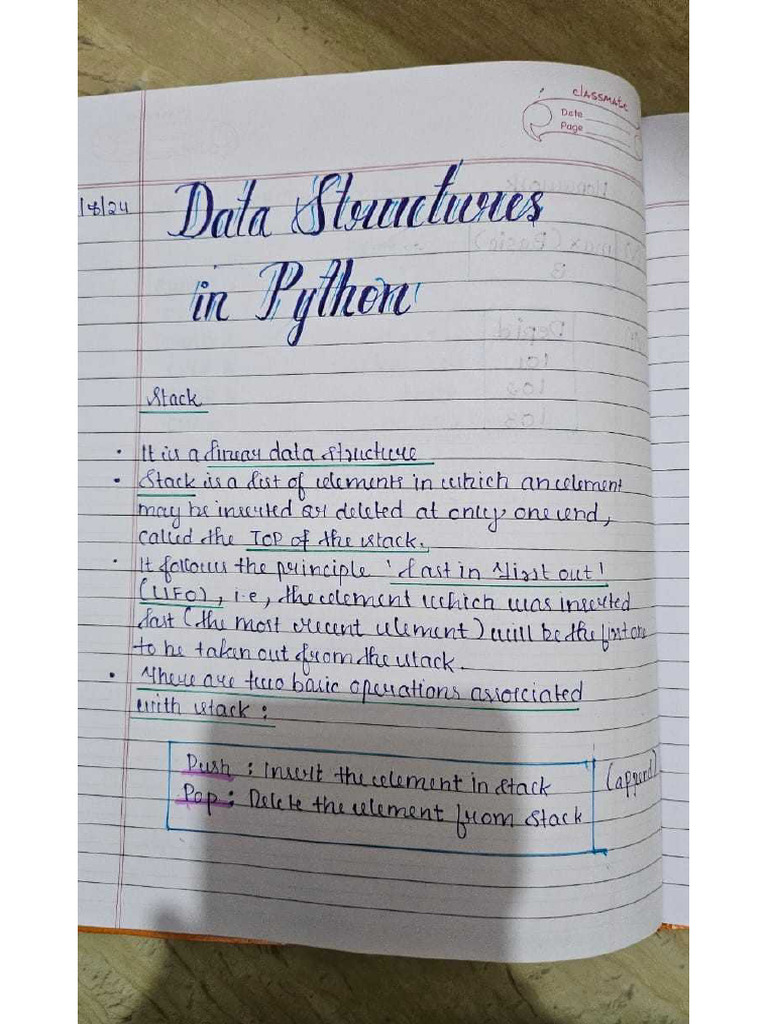 classmate
Date
Page
/8/24
Data Structures
in Python
Stack
• It is a linear data structure
• Stack is a list of elements in which an element
may be inserted or deleted at only one end,
called the TOP of the stack.
• It follows the principle 'Last in First out'
(LIFO), i.e, the element which was inserted
last (the most recent element) will be the first one
to be taken out from the stack.
• There are two basic operations associated
with stack :
Push : Insert the element in stack (append)
Pop : Delete the element from stack